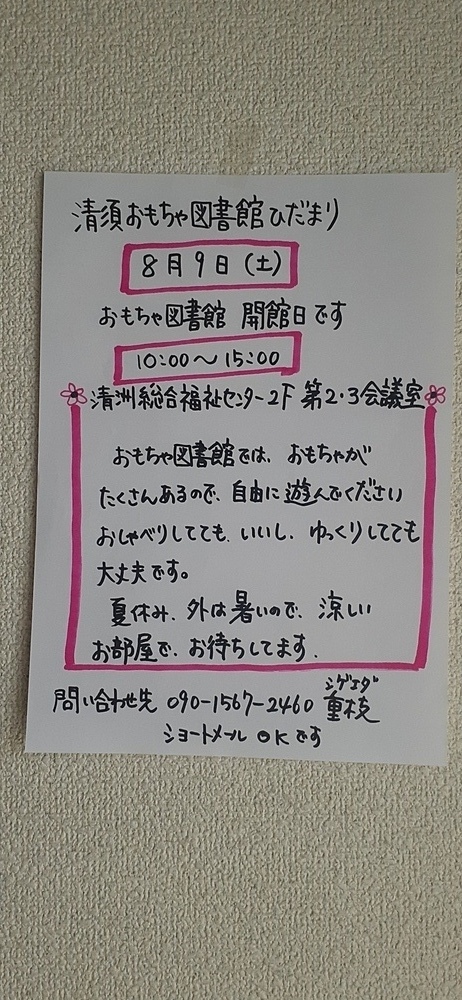 清須おもちゃ図書館ひだまり
8月9日(土)
おもちゃ図書館 開館日です
10:00～15:00
清洲総合福祉センター2F 第2・3会議室
おもちゃ図書館では、おもちゃが
たくさんあるので、自由に遊んでください
おしゃべりしてても、いいし、ゆっくりしてても
大丈夫です。
夏休み、外は暑いので、涼しい
お部屋で、お待ちしてます.
シゲエダ
問い合わせ先 090-1567-2460 重枝
ショートメール OKです